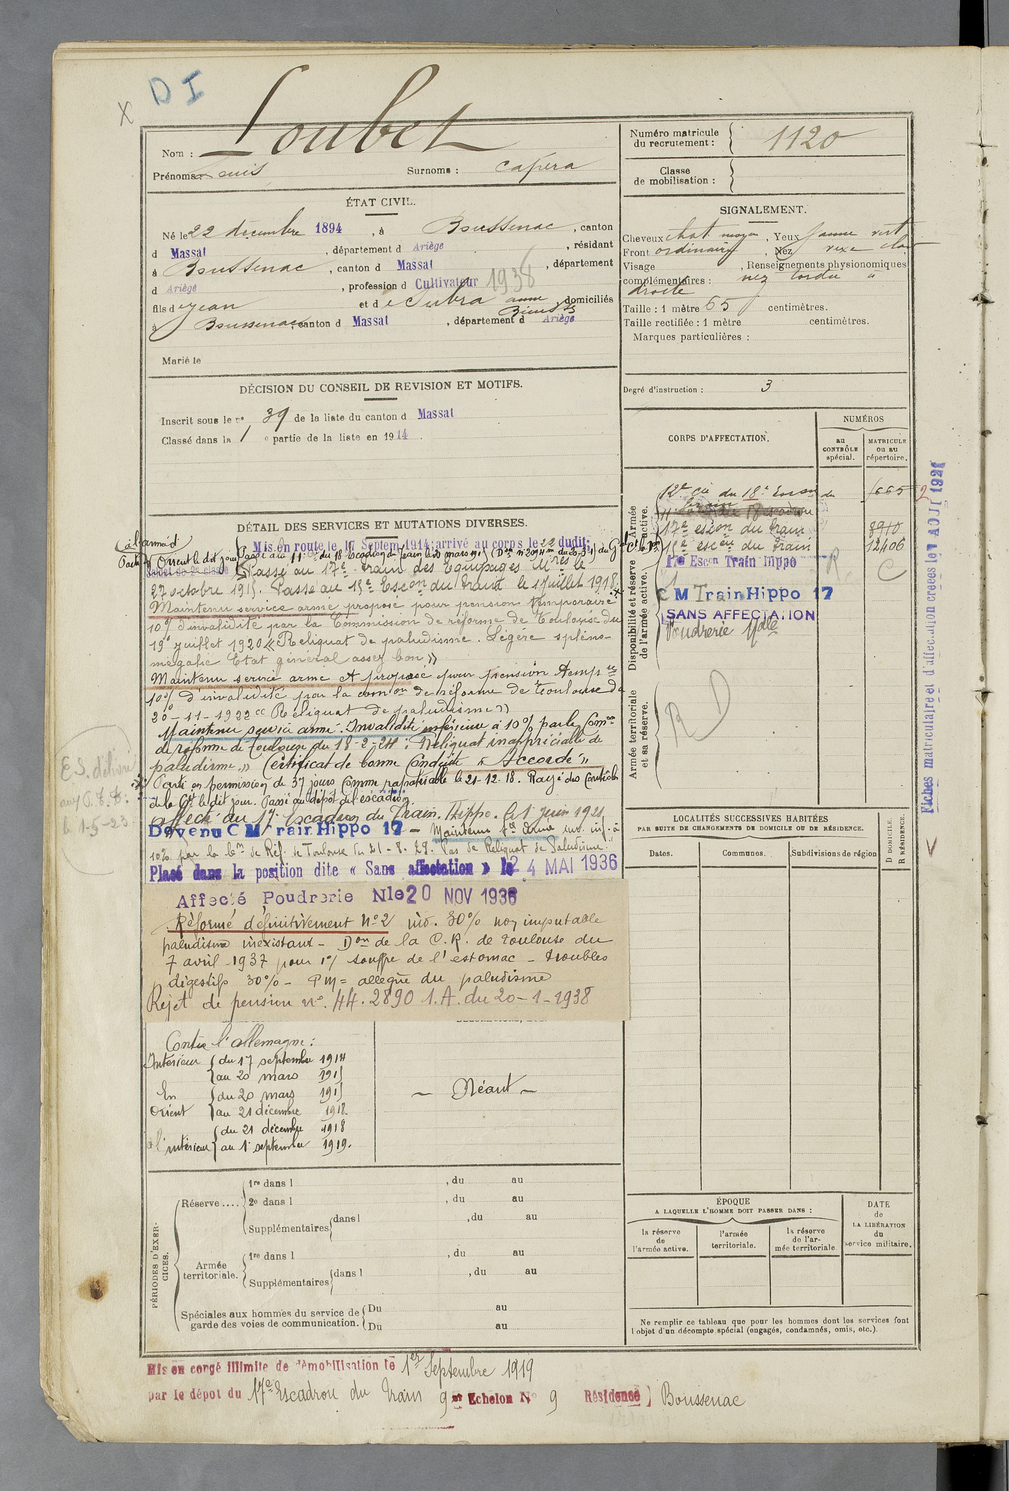 D I
X
Nom : Loubet
Prénoms : Louis Surnoms : Capéra
Numéro matricule du recrutement : 1120
Classe de mobilisation :
ÉTAT CIVIL.
Né le 22 décembre 1894, à Boussenac, canton
d Massat, département d Ariège, résidant
à Boussenac, canton d Massat, département
d Ariège, profession d Cultivateur 1938
fils d e Jean et d e Anne, domiciliés
à Boussenac canton d Massat, département d Ariège
Marié le
SIGNALEMENT.
Cheveux chat. moyen, Yeux jaune vert
Front ordinaire, Nez
Visage , Renseignements physionomiques
complémentaires : nez tordu à
droite
Taille : 1 mètre 65 centimètres.
Taille rectifiée : 1 mètre centimètres.
Marques particulières :
Degré d'instruction : 3
DÉCISION DU CONSEIL DE REVISION ET MOTIFS.
Inscrit sous le n° 39 de la liste du canton d Massat
Classé dans la 1 e partie de la liste en 1914.
CORPS D'AFFECTATION.
NUMÉROS
au CONTRÔLE spécial.
MATRICULE ou au répertoire.
Armée active.
Disponibilité et réserve de l'armée active.
Armée territoriale et sa réserve.
17e escon du train 8910
du train 12406
Escon Train hippo
C M Train Hippo 17
SANS AFFECTATION
Poudrerie Nle
R
C
R D
DÉTAIL DES SERVICES ET MUTATIONS DIVERSES.
Mis en route le 17 Septem. 1914; arrivé au corps le 22 dudit;
Passé au 17e train des Equipages Mires le
27 octobre 1915. Passé au Escon du train le 1 juillet 1918.
Maintenu service armé proposé pour pension temporaire
10% d'invalidité par la Commission de réforme de Toulouse du
19 juillet 1920 « Reliquat de paludisme. Légère spléno-
mégalie Etat général assez bon »
Maintenu service armé et proposé pour pension temp re
10% d'invalidité par la Comon de réforme de Toulouse du
20-11-1922 « Reliquat de paludisme »
Maintenu service armé. Invalidité inférieure à 10% par la Comon
de réforme de Toulouse du 18-2-24 : Reliquat inappréciable de
paludisme. » Certificat de bonne Conduite « Accordé »
Parti en permission de 37 jours comme rapatriable le 21-12-18. Rayé des Contrôles
de la Cie le dit jour. Passé au dépôt de l'escadron
Affecté au 17 Escadron du Train. Hippo. le 1 juin 1921
Devenu C M Train Hippo 17 – Maintenu sce armé inv. inf. à
10% par la Con de Réf. de Toulouse du 21-8-29. Pas de Reliquat de Paludisme
Placé dans la position dite « Sans affectation » le 24 MAI 1936
Affecté Poudrerie Nle 20 NOV 1936
Réformé définitivement N°2 inv. 30% non imputable
paludisme inexistant – Don de la C.R. de Toulouse du
7 avril 1937 pour 1°/ souffre de l'estomac – troubles
digestifs 30% – allègue du paludisme
Rejet de pension n° 44.2890 I.A. du 20-1-1938
E.S. délivré
le 1-5-23
Fiches matriculaire et d'affectation créées le 7 AOUT 1921
V
Contre l'Allemagne :
Intérieur { du 17 septembre 1914
au 20 mars 1915
En Orient { du 20 mars 1915
au 21 décembre 1918.
à l'intérieur { du 21 décembre 1918
au 1 septembre 1919.
– Néant –
LOCALITÉS SUCCESSIVES HABITÉES
PAR SUITE DE CHANGEMENTS DE DOMICILE OU DE RÉSIDENCE.
Dates.
Communes.
Subdivisions de région
D DOMICILE.
R RÉSIDENCE.
ÉPOQUE
A LAQUELLE L'HOMME DOIT PASSER DANS :
la réserve de l'armée active.
l'armée territoriale.
la réserve de l'armée territoriale
DATE de LA LIBÉRATION du service militaire.
Ne remplir ce tableau que pour les hommes dont les services font
l'objet d'un décompte spécial (engagés, condamnés, omis, etc.).
PÉRIODES D'EXERCICES.
Réserve.... 1re dans l , du au
2e dans l , du au
Supplémentaires dans l , du au
Armée territoriale. 1re dans l , du au
Supplémentaires dans l , du au
Spéciales aux hommes du service de garde des voies de communication. Du au
Du au
Mis en congé illimité de démobilisation le 1er Septembre 1919
par le dépot du 17e Escadron du Train 9 me Echelon N° 9 Résidence } Boussenac